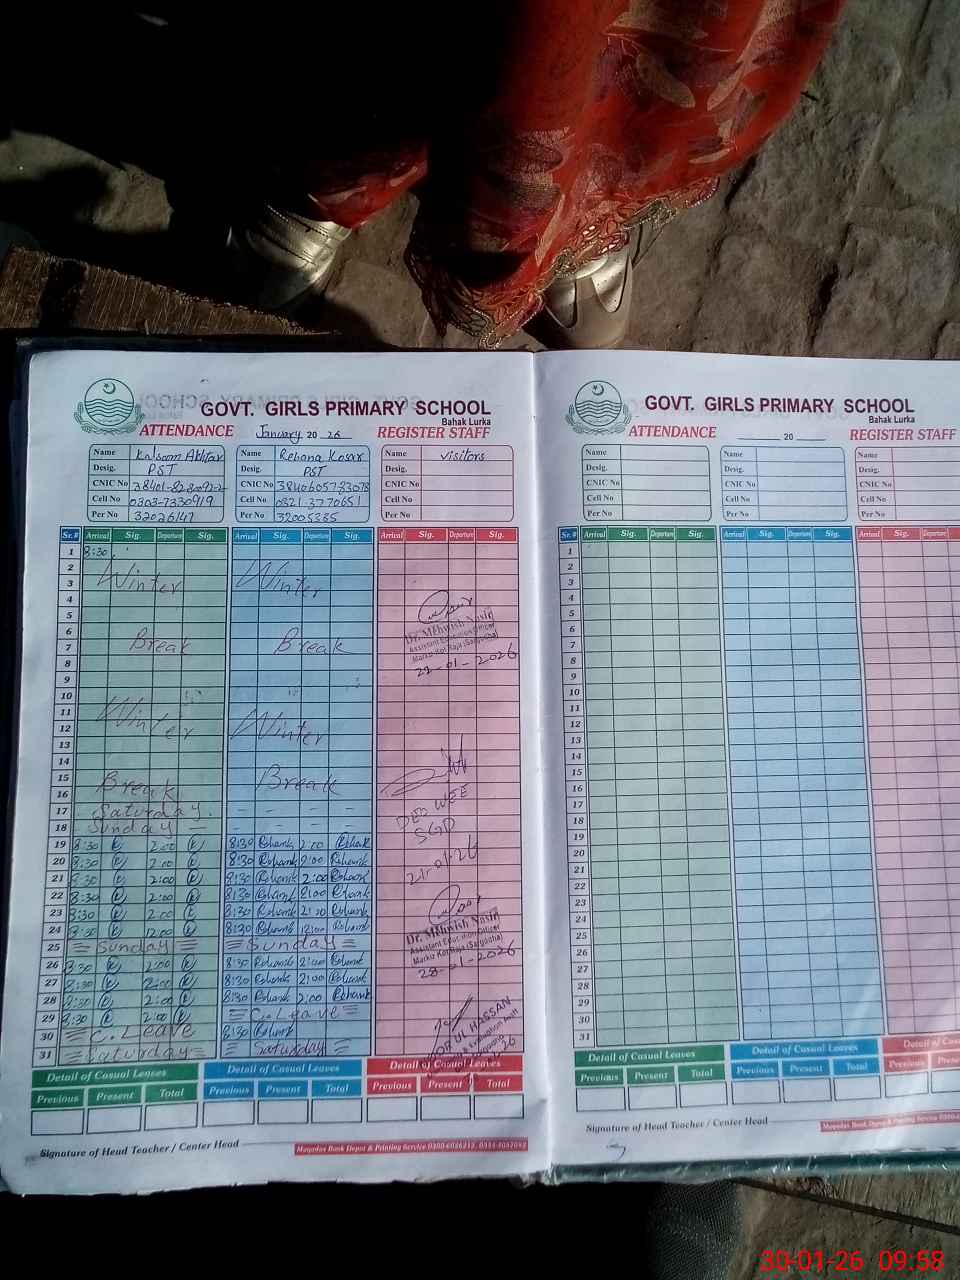 GOVT. GIRLS PRIMARY SCHOOL
Bahak Lurka
ATTENDANCE January 20 26 REGISTER STAFF
Name Kalsoom Akhtar Name Rehana Kosar Name visitors
Desig. PST Desig. PST Desig.
CNIC No CNIC No CNIC No
Cell No 0303-7330919 Cell No 0321-3770651 Cell No
Per No 32026147 Per No 32005385 Per No
Sr.# Arrival Sig. Departure Sig. Arrival Sig. Departure Sig. Arrival Sig. Departure Sig.
1 8:30
2 Winter Winter
3
4
5
6 Break Break
7
8
22-01-2026
9
10
11 Winter Winter
12
13
14
15 Break Break
16
17 Saturday. - -
18 - Sunday - - -
DEO WEE
SGD
21-01-26
19 8:30 2:00 8:30 Rehana 2:00 Rehana
20 8:30 2:00 8:30 Rehana 2:00 Rehana
21 8:30 2:00 8:30 Rehana 2:00 Rehana
22 8:30 2:00 8:30 Rehana 2:00 Rehana
23 8:30 2:00 8:30 Rehana 2:00 Rehana
24 8:30 12:00 8:30 Rehana 12:00 Rehana
25 Sunday Sunday
Dr. Mehwish Nasir
Assistant Education Officer
Markaz Kot Raja (Sargodha)
28-01-2026
26 8:30 2:00 8:30 Rehana 2:00 Rehana
27 8:30 2:00 8:30 Rehana 2:00 Rehana
28 8:30 2:00 8:30 Rehana 2:00 Rehana
29 8:30 2:00 C. Leave
30 C. Leave 8:30 Rehana
31 Saturday Saturday
Detail of Casual Leaves Detail of Casual Leaves Detail of Casual Leaves
Previous Present Total Previous Present Total Previous Present Total
Signature of Head Teacher / Center Head
GOVT. GIRLS PRIMARY SCHOOL
Bahak Lurka
ATTENDANCE 20 REGISTER STAFF
Name Name Name
Desig. Desig. Desig.
CNIC No CNIC No CNIC No
Cell No Cell No Cell No
Per No Per No Per No
Sr.# Arrival Sig. Departure Sig. Arrival Sig. Departure Sig. Arrival Sig. Departure
1
2
3
4
5
6
7
8
9
10
11
12
13
14
15
16
17
18
19
20
21
22
23
24
25
26
27
28
29
30
31
Detail of Casual Leaves Detail of Casual Leaves
Previous Present Total Previous Present Total Previous
Signature of Head Teacher / Center Head
30-01-26 09:58